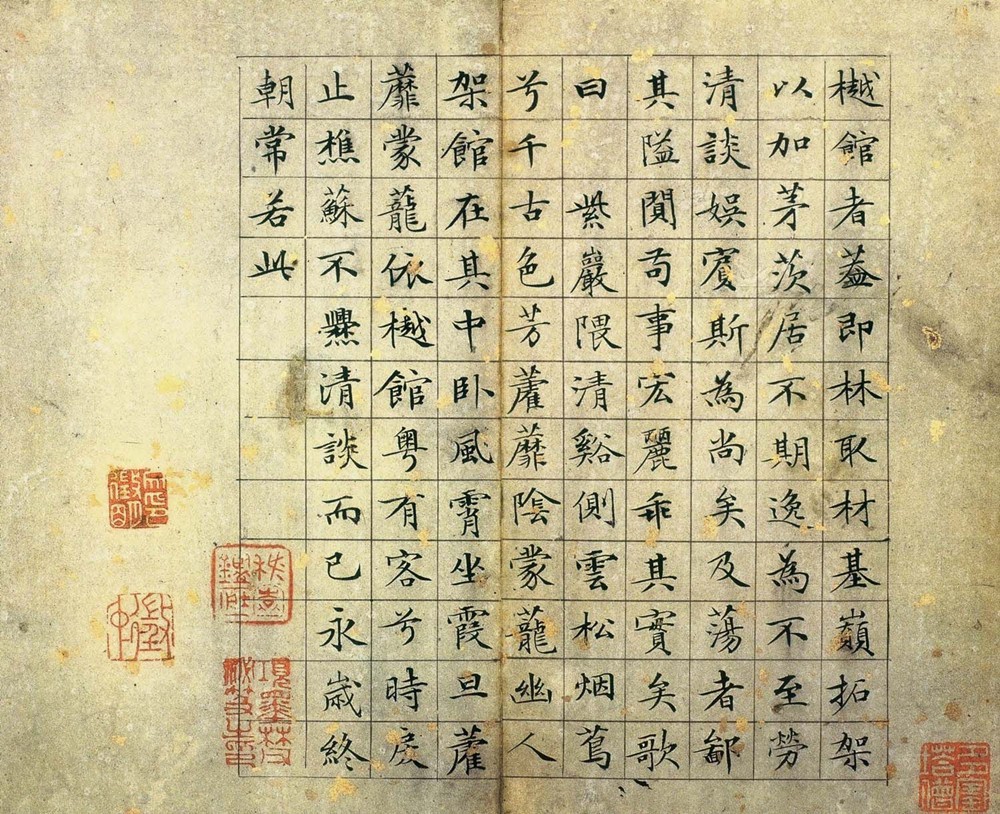 樾館者蓋即林取材基巔拓架
以加茅茨居不期逸為不至勞
清談娛賓斯為尚矣及蕩者鄙
其隘闃苟事宏麗乖其實矣歌
曰 紫巖隈清谿側雲松烟蔦
兮千古色芳藿蘼陰蒙蘢幽人
架館在其中卧風霄坐霞旦藿
蘼蒙蘢依樾館粤有客兮時戾
止樵蘇不爨清談而已永歲終
朝常若此